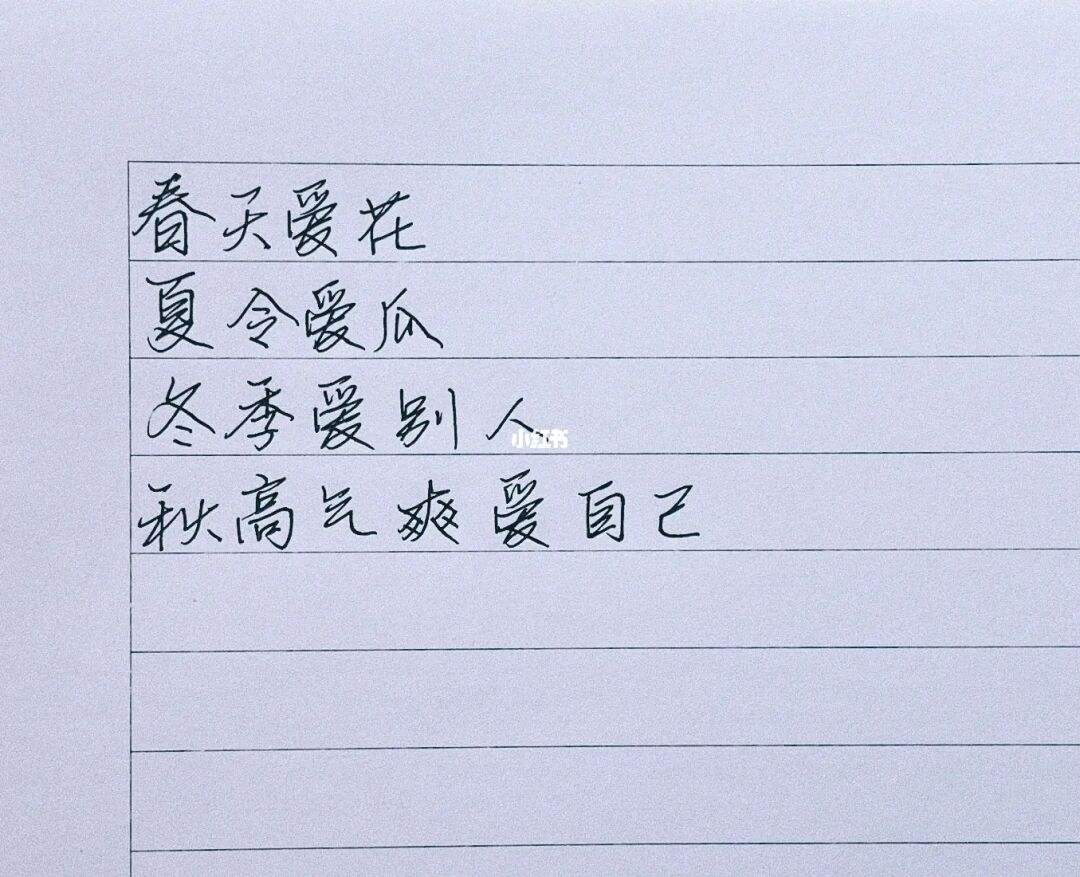 春天爱花
夏令爱瓜
冬季爱别人
小红书
秋高气爽爱自己